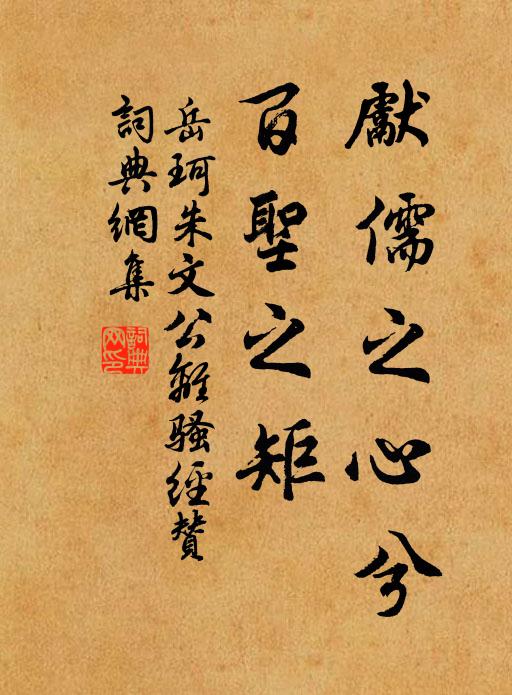 獻儒之心兮
百聖之矩
岳珂朱文公離騷經贊
詞典網集
詞典網印